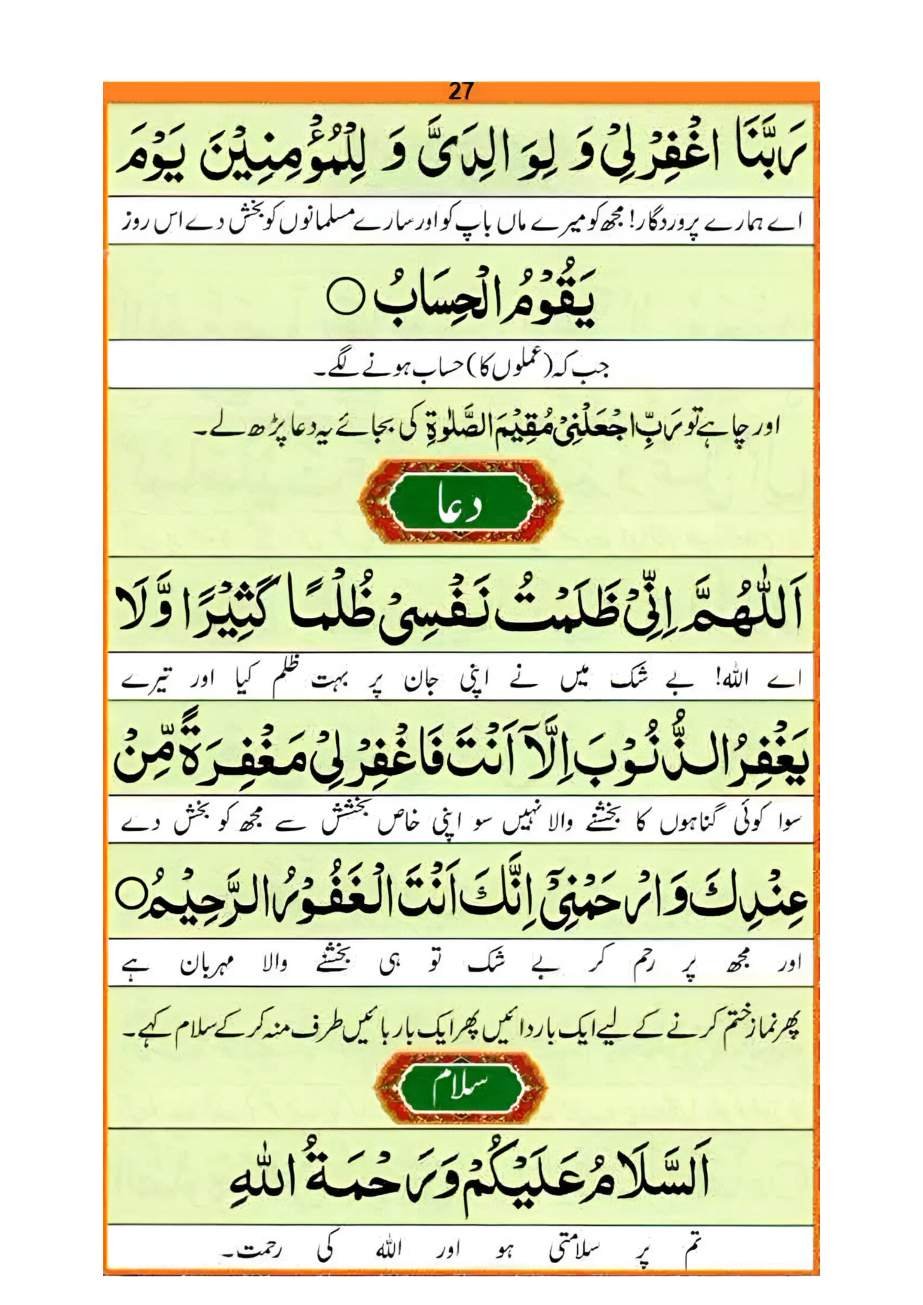 27
رَبَّنَا اغْفِرْ لِیْ وَ لِوَالِدَیَّ وَ لِلْمُؤْمِنِیْنَ یَوْمَ
اے ہمارے پروردگار! مجھ کو میرے ماں باپ کو اور سارے مسلمانوں کو بخش دے اس روز
یَقُوْمُ الْحِسَابُ ○
جب کہ (عملوں کا) حساب ہونے لگے۔
اور چاہے تو رَبِّ اجْعَلْنِیْ مُقِیْمَ الصَّلٰوةِ کی بجائے یہ دعا پڑھ لے۔
دعا
اَللّٰهُمَّ اِنِّیْ ظَلَمْتُ نَفْسِیْ ظُلْمًا كَثِیْرًا وَّلَا
اے اللہ! بے شک میں نے اپنی جان پر بہت ظلم کیا اور تیرے
یَغْفِرُ الذُّنُوْبَ اِلَّاۤ اَنْتَ فَاغْفِرْ لِیْ مَغْفِرَةً مِّنْ
سوا کوئی گناہوں کا بخشنے والا نہیں سو اپنی خاص بخشش سے مجھ کو بخش دے
عِنْدِكَ وَارْحَمْنِیْۤ اِنَّكَ اَنْتَ الْغَفُوْرُ الرَّحِیْمُ○
اور مجھ پر رحم کر بے شک تو ہی بخشنے والا مہربان ہے
پھر نماز ختم کرنے کے لیے ایک بار دائیں پھر ایک بار بائیں طرف منہ کر کے سلام کہے۔
سلام
اَلسَّلَامُ عَلَیْكُمْ وَرَحْمَةُ اللهِ
تم پر سلامتی ہو اور اللہ کی رحمت۔